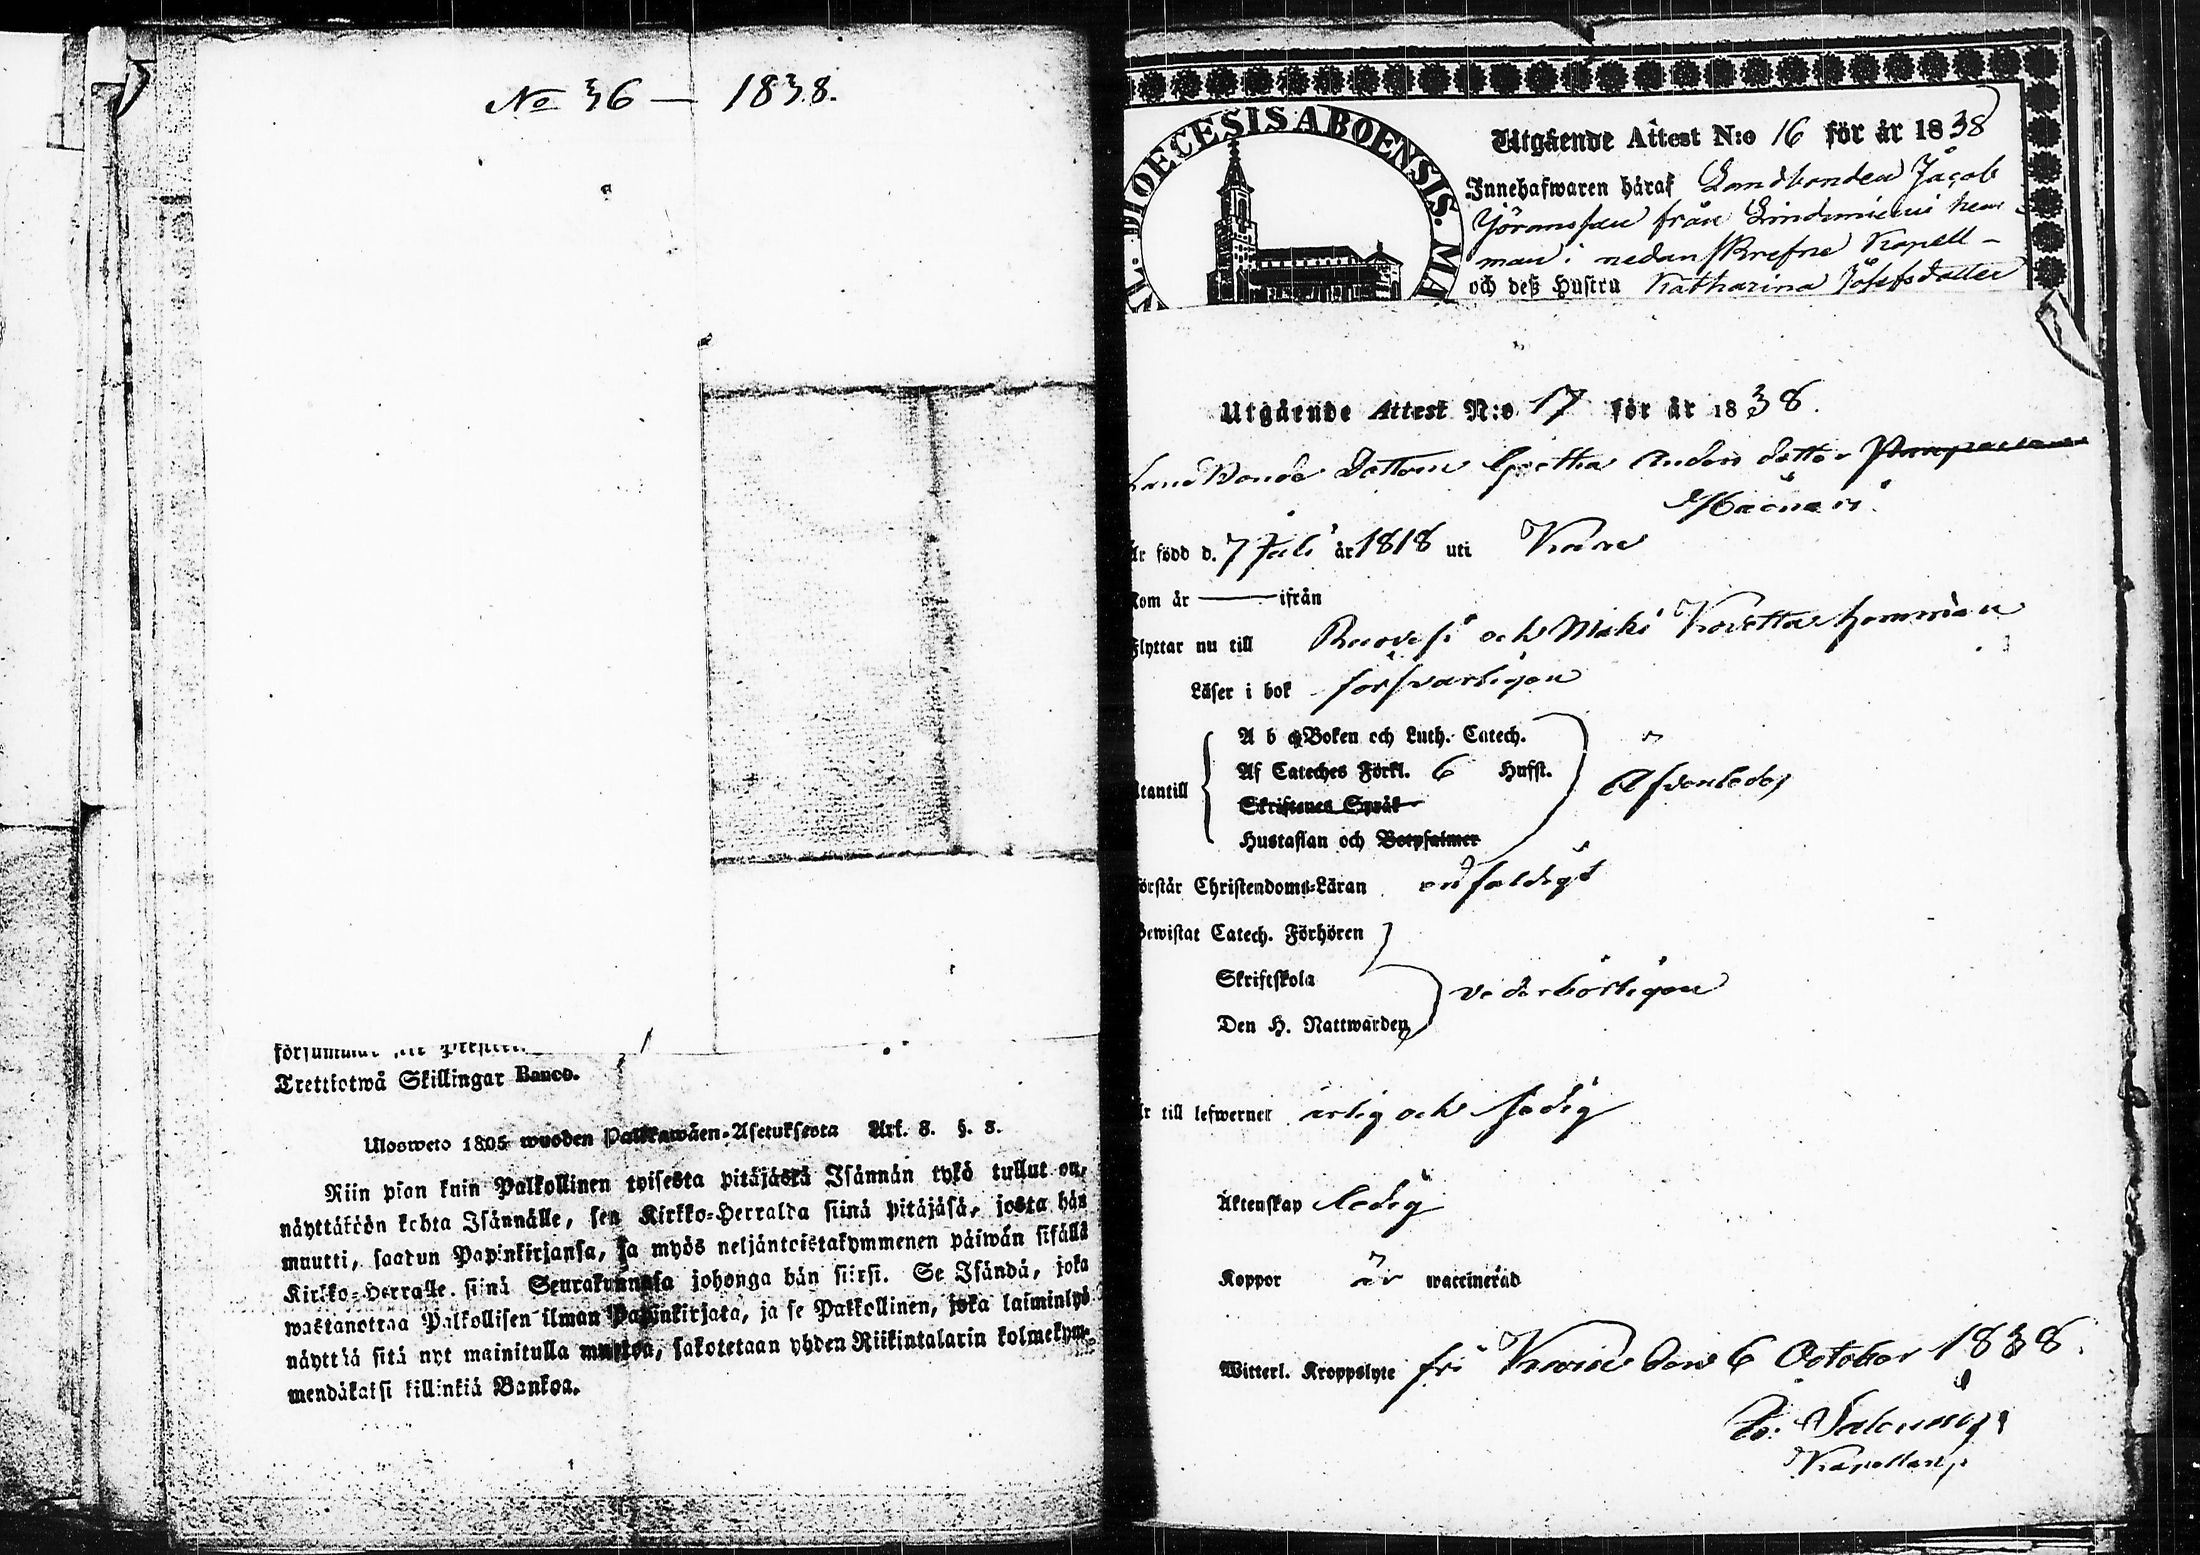 No 36 — 1838.
Trettiotwå Skillingar Banco.
Ulosweto 1805 wuoden Palkkawäen-Asetuksesta Art. 8. §. 8.
Niin pian kuin Palkollinen toisesta pitäjästä Isännän tykö tullut on,
näyttäköön kohta Isännälle, sen Kirkko-Herralda siinä pitäjäsä, josta hän
muutti, saadun Papinkirjansa, ja myös neljäntoistakymmenen päiwän sisällä
Kirkko-Herralle siinä Seurakunnasa johonga hän siirsi. Se Isändä, joka
wastanottaa Palkollisen ilman Papinkirjata, ja se Palkollinen, joka laiminlyö
näyttää sitä nyt mainitulla muotoa, sakotetaan yhden Riikintalarin kolmekym-
mendäkaksi killinkiä Bankoa.
DIOECESIS ABOENSIS. MA
Utgående Attest N:o 16 för år 1838
Innehafwaren häraf Landbonden Jacob
Jöransson från hem-
man i nedanskrefne Kapell-
och deß Hustru Katharina Josefsdotter
Utgående Attest N:o 17 för år 1838.
Landbonde Dottern Greta Anders dotter
är född d. 7 Juli år 1818 uti
Kom år — ifrån
Flyttar nu till Ruovesi och Mäki hemman
Läser i bok försvarligen
A b c Boken och Luth. Catech.
Af Cateches Förkl. 6 Hufst.
Utantill
Skriftenes Språk
Hustaflan och Botpsalmer
Förstår Christendoms-Läran enfaldigt
Bewistat Catech. Förhören
Skriftskola
vederbörligen
Den H. Nattwarden
Är till lefwernet ärlig och sedig
Äktenskap ledig
Koppor är waccinerad
Witterl. Kroppslyte fri den 6 October 1838.
Kapellan.